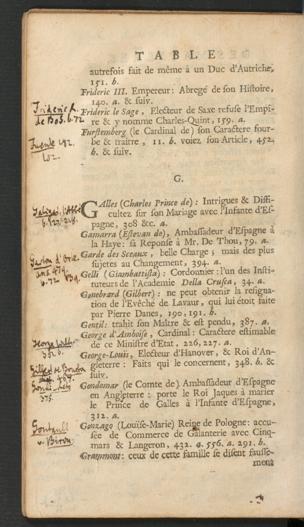 TABLE
autrefois fait de même à un Duc d'Autriche,
151. b.
Frideric III. Empereur: Abregé de son Histoire,
140. a. & suiv.
Frideric le Sage, Electeur de Saxe refuse l'Empi-
re & y nomme Charles-Quint, 159. a.
Furstemberg (le Cardinal de) son Caractère four-
be & traitre, 11. b. voiez son Article, 452.
b. & suiv.
G.
GAlles (Charles Prince de): Intrigues & Diffi-
cultez sur son Mariage avec l'Infante d'Es-
pagne, 308 &c. a.
Gamarra (Estevan de), Ambassadeur d'Espagne à
la Haye: sa Reponse à Mr. De Thou, 79. a.
Garde des Sceaux, belle Charge; mais des plus
sujetes au Changement, 394. a.
Gelli (Giambattista): Cordonnier: l'un des Insti-
tuteurs de l'Academie Della Crusca, 34. a.
Genebrard (Gilbert): ne peut obtenir la resigna-
tion de l'Evêché de Lavaur, qui lui étoit faite
par Pierre Danes, 190, 191. b.
Gentil: trahit son Maître & est pendu, 387. a.
George d'Amboise, Cardinal: Caractère estimable
de ce Ministre d'Etat, 226, 227. a.
George-Louis, Electeur d'Hanover, & Roi d'An-
gleterre: Faits qui le concernent, 348. b. &
suiv.
Gondomar (le Comte de) Ambassadeur d'Espagne
en Angleterre: porte le Roi Jaques à marier
le Prince de Galles à l'Infante d'Espagne,
312. a.
Gonzago (Louïse-Marie) Reine de Pologne: accu-
sée de Commerce de Galanterie avec Cinq-
mars & Langeron, 432. a. 556. a. 291. b.
Grammont: ceux de cette famille se disent fausse-
ment